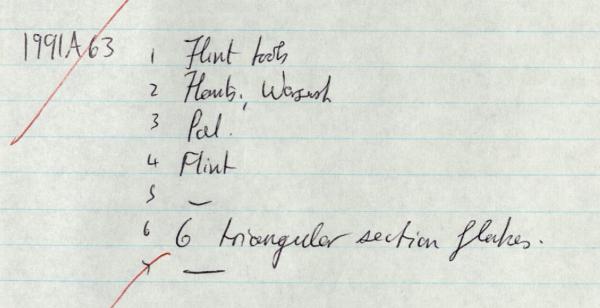 1991A63 1 Flint tools
2 Hants, Warsash
3 Pal.
4 Flint
5 —
6 6 triangular section flakes.
7 —